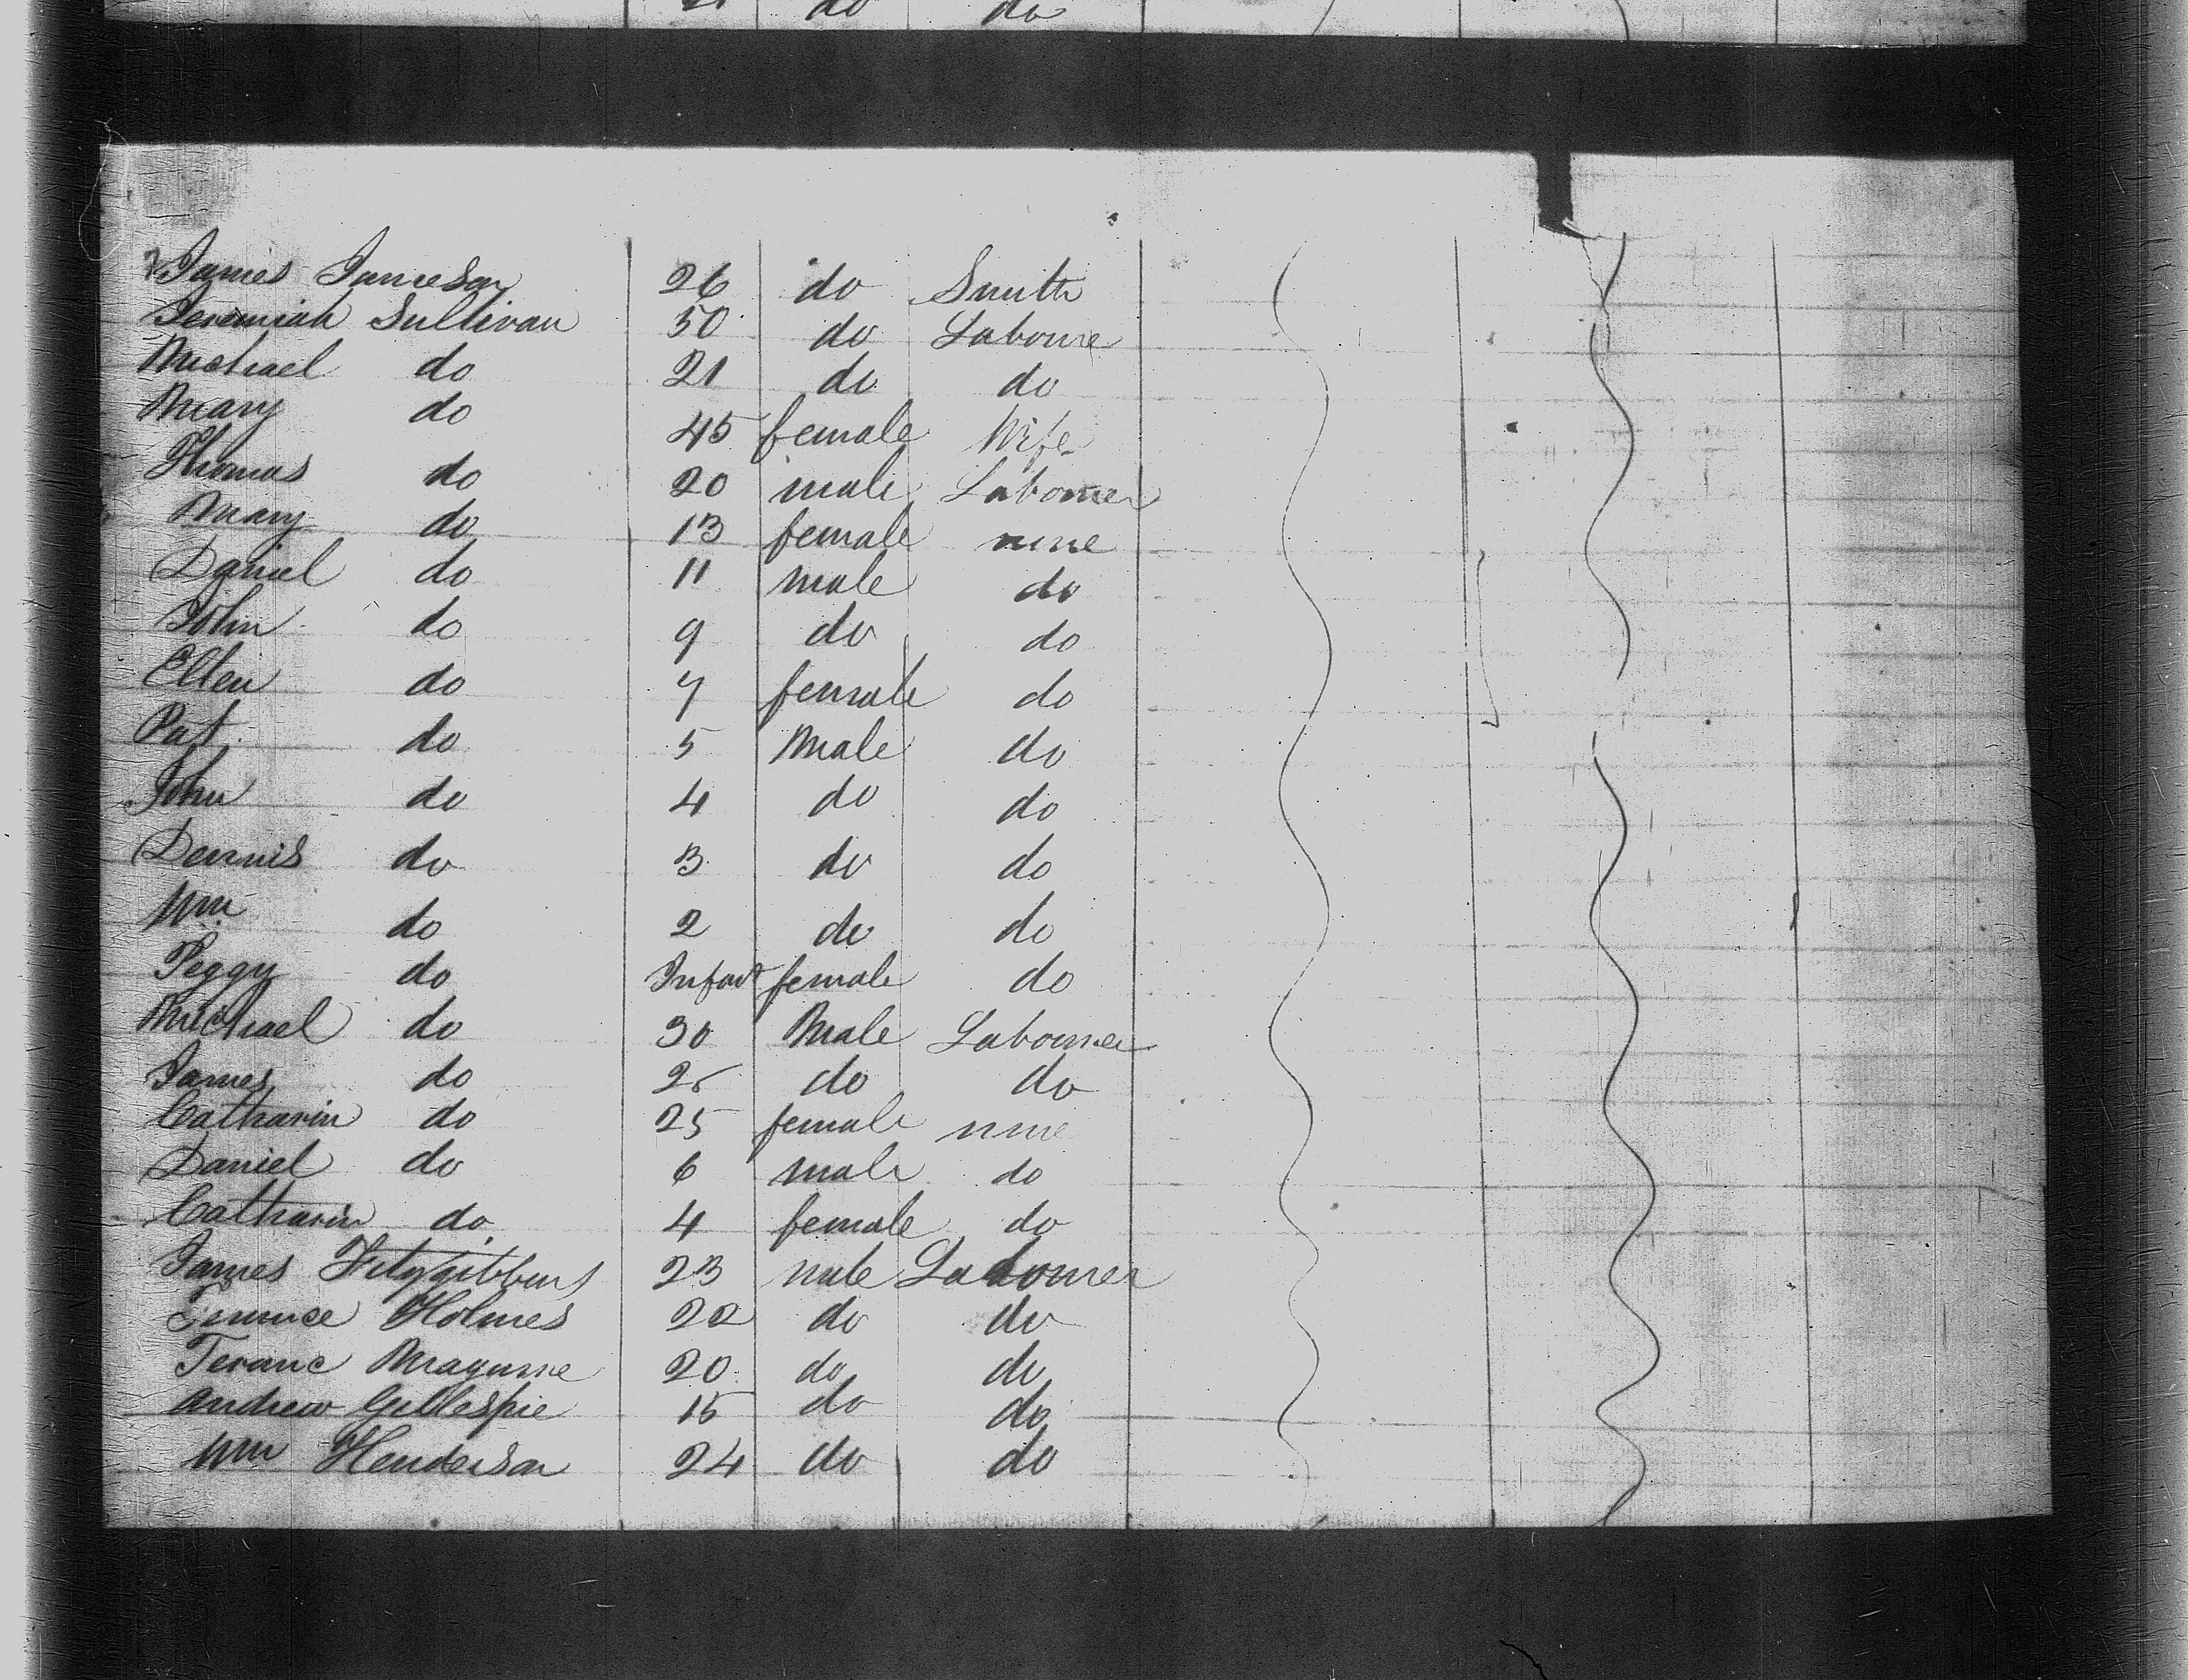 21 do do
James Jameson 26 do Smith
Jeremiah Sullivan 50 do Laboure
Michael do 21 do do
Mary do 45 female Wife
Thomas do 20 male Labourer
Mary do 13 female none
Daniel do 11 male do
John do 9 do do
Ellen do 7 female do
Pat do 5 Male do
John do 4 do do
Dennis do 3 do do
Wm do 2 do do
Peggy do Infant female do
Michael do 30 Male Labourer
James do 25 do do
Catharin do 25 female none
Daniel do 6 male do
Catharin do 4 female do
James Fitzgibbons 23 male Labourer
Holmes 22 do do
Teranc Maguire 20 do do
Andrew Gillespie 15 do do
Wm Henderson 24 do do